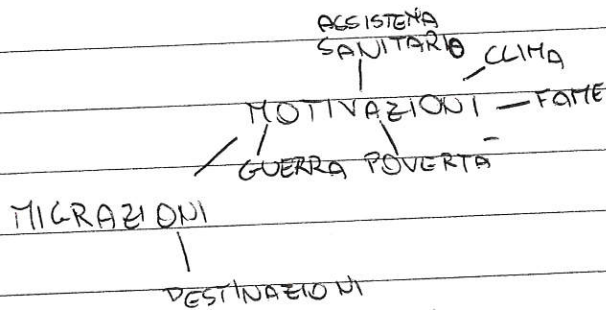 ASSISTENA
SANITARIO
CLIMA
MOTIVAZIONI — FAME
GUERRA POVERTA
MIGRAZIONI
DESTINAZIONI